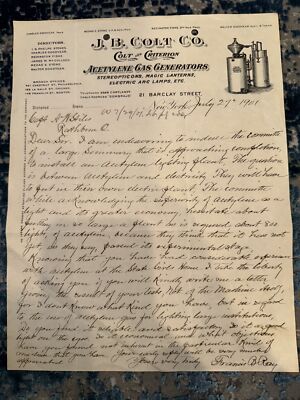 DIRECTORS.
J. B. COLT CO.
COLT AND CRITERION
ACETYLENE GAS GENERATORS,
STEREOPTICONS, MAGIC LANTERNS,
ELECTRIC ARC LAMPS, ETC.
21 BARCLAY STREET.
New York, July 27th 1901
Rathbone O.
Dear Sir: I am endeavoring to induce the committee
of a large approaching completion
to install an Acetylene lighting plant. The question
is between Acetylene and electricity. They will have
to put in their own electric plant. The committee
while acknowledging the superiority of Acetylene as a
light and its greater economy, hesitate about
putting in so large a plant as is required about 800
lights of acetylene because they think that it has not
yet, as they say, passed its experimental stage
Knowing that you have had considerable experience
with acetylene at the State Girls Home I take the liberty
of asking you if you will kindly write me a letter
giving the result of your test. Not of the Machine itself,
for I don't know what kind you have but in regard
to the use of acetylene gas for lighting large institutions,
do you find it reliable and satisfactory. Is it a good
light on the eyes, is it economical, and what objections
have you found not inherent in the particular kind of
machine that you have. Your early reply will be very much
appreciated.
Yours very truly
Francis B. Ray